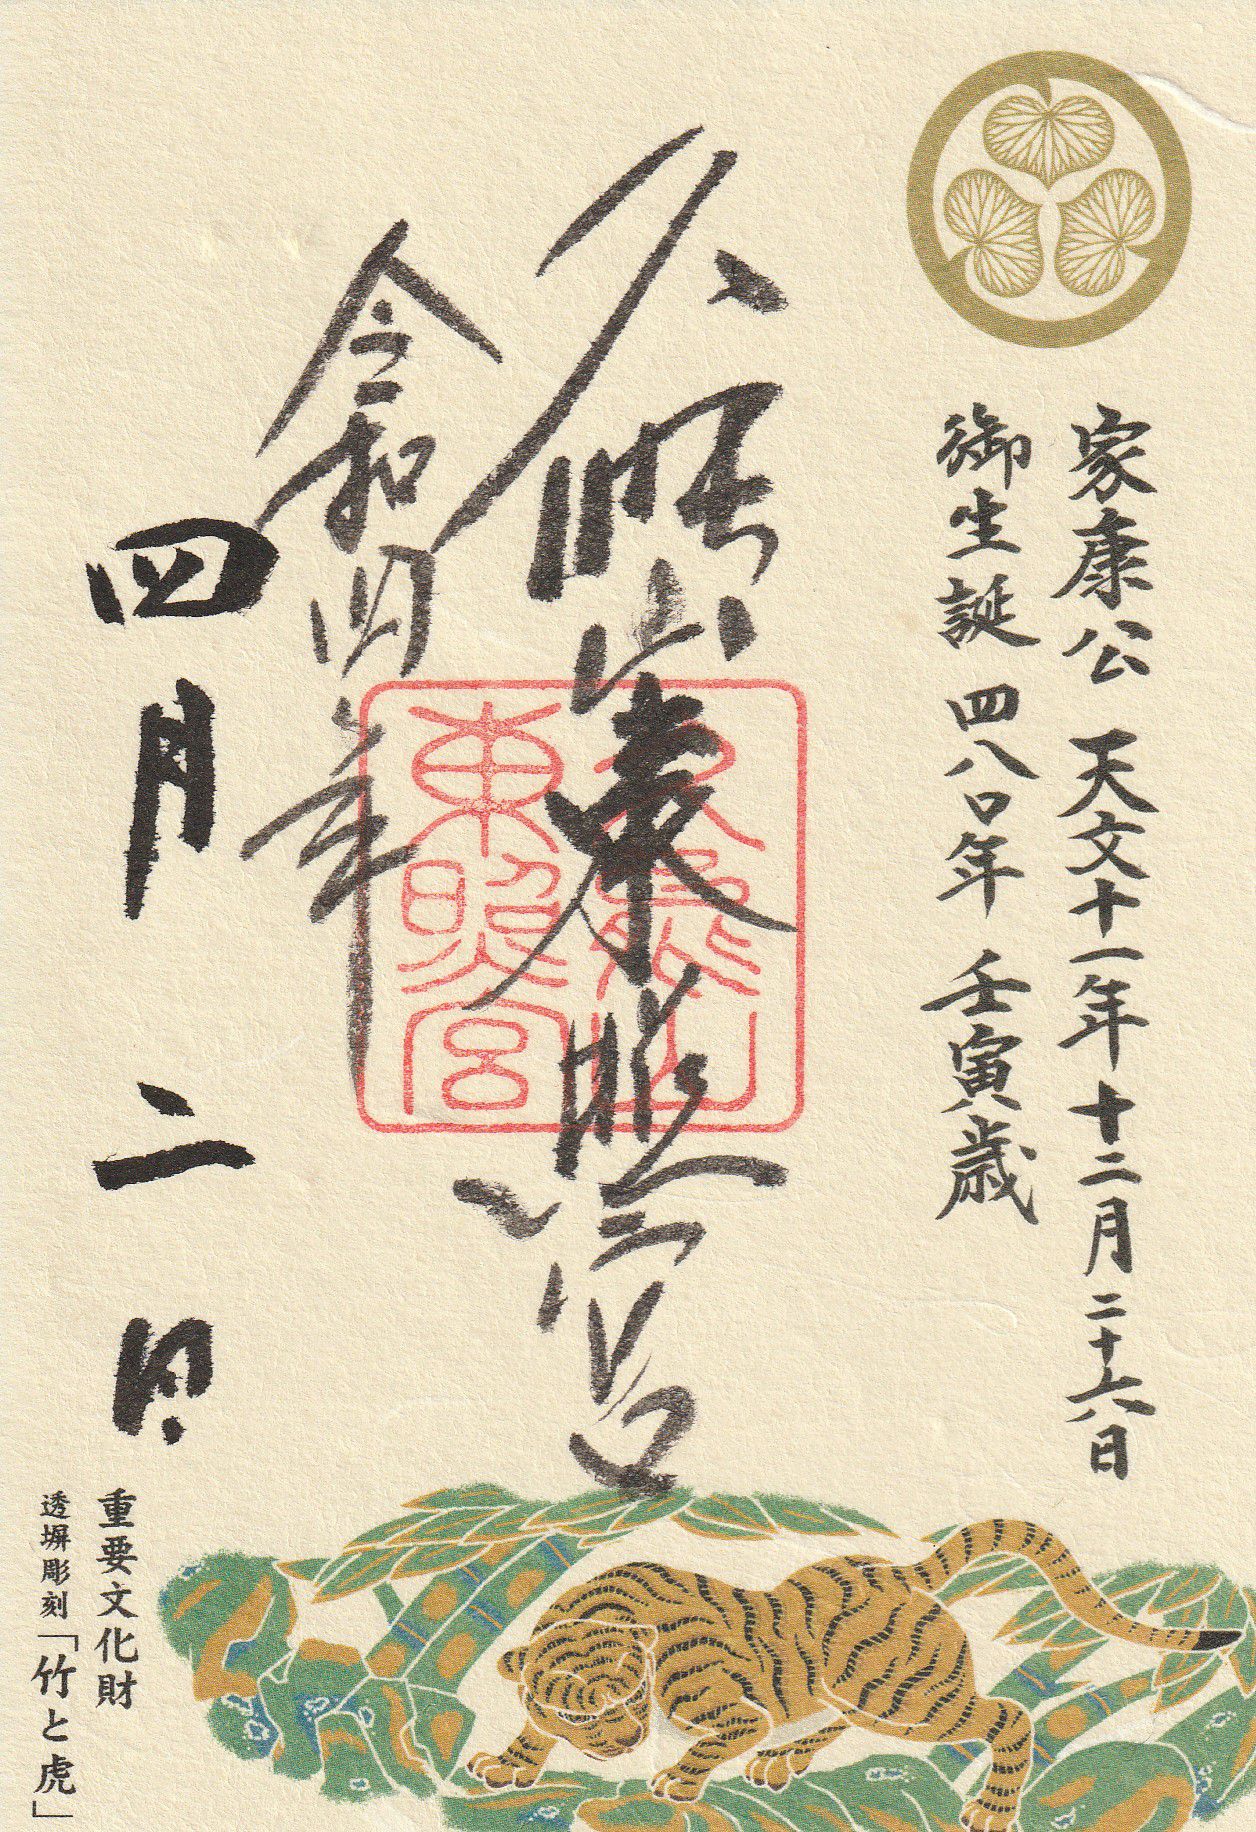 家康公 天文十一年十二月二十六日
御生誕 四八〇年 壬寅歳
久能山東照宮
久能山
東照宮
令和四年
四月二日
重要文化財
透塀彫刻「竹と虎」